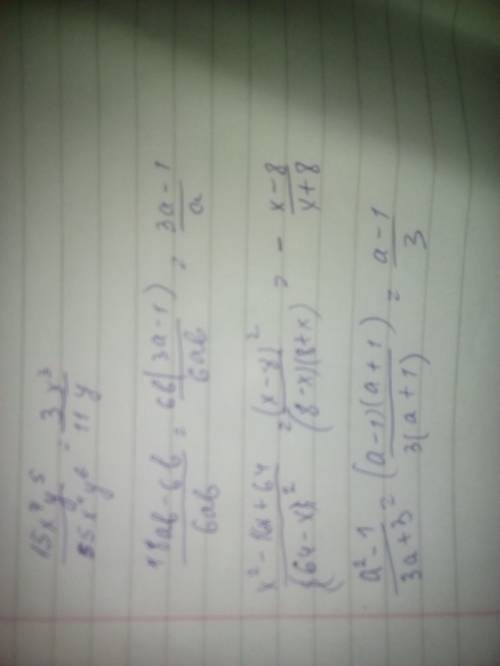 15x⁷y⁵/55x⁴y⁶ = 3x³/11y
18ab-6b/6ab = 6b(3a-1)/6ab = 3a-1/a
x²-16x+64/(64-x)² = (x-8)²/(8-x)(8+x) = - x-8/x+8
a²-1/3a+3 = (a-1)(a+1)/3(a+1) = a-1/3